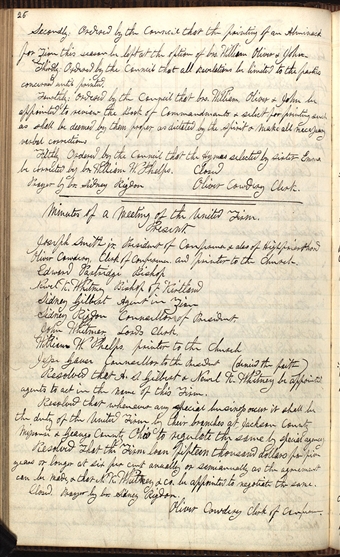 26
Secondly, Ordered by the Council that the printing of an Almanack
for Zion this season be left at the option of bro. William Oliver & John.
Thirdly Ordered by the Council that all revelations be limited to the parties
concerned until printed.
Fourthly, Ordered by the Council that bro. William, Oliver & John be
appointed to review the Book of Commandments & select for printing such
as shall be deemed by them proper as dictated by the Spirit & make all necessary
verbal corrections
Fifthly, Ordered by the Council that the hymns selected by sister Emma
be corrected by br. William W. Phelps. Closed
Prayer by bro. Sidney Rigdon Oliver Cowdery Clerk.
Minutes of a Meeting of the United Firm.
Present
Joseph Smith jr. President of Conference & also of High priesthood
Oliver Cowdery, Clerk of Conference and printer to the Church.
Edward Partridge Bishop
Newel K. Whitney Bishop of Kirtland
Sidney Gilbert Agent in Zion
Sidney Rigdon Councillor of President
John Whitmer Lord's Clerk.
William W. Phelps printer to the Church
Jesse Gause Councillor to the President
Resolved that A. S. Gilbert & Newel K. Whitney be appointed
agents to act in the name of this Firm.
Resolved that whenever any special business occur it shall be
the duty of the United Firm by their branches at Jackson County
Missouri & Geauga County Ohio to regulate the same by special agency
Resolved That the Firm loan fifteen thousand dollars for five
years or longer at six per cent annually or semiannually as the agreement
can be made, & that N. K. Whitney & co. be appointed to negotiate the same.
Closed. Prayer by bro. Sidney Rigdon.
Oliver Cowdery Clerk of Conference.